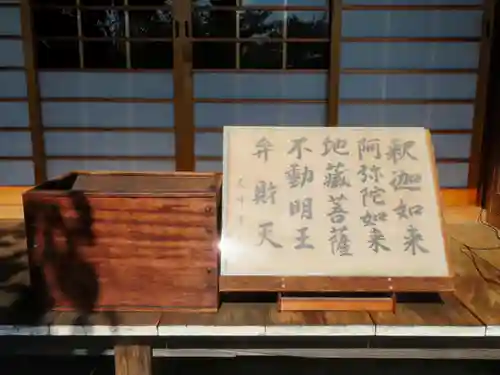 釈迦如来
阿弥陀如来
地蔵菩薩
不動明王
弁財天